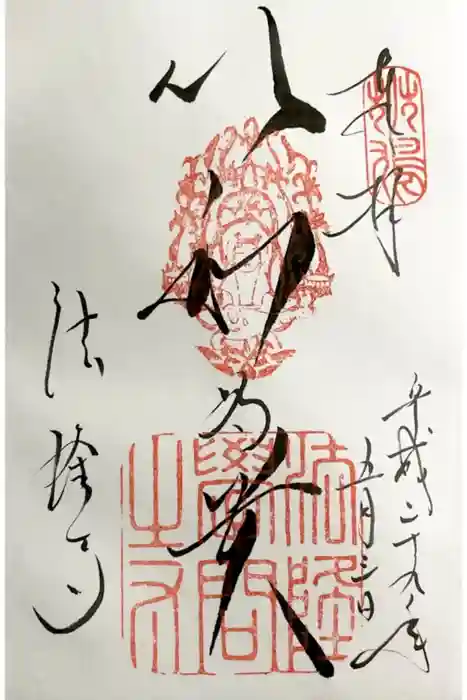 奉拝
平成二十九年
五月三日
以和為貴
法隆寺
法隆
學問
之寺